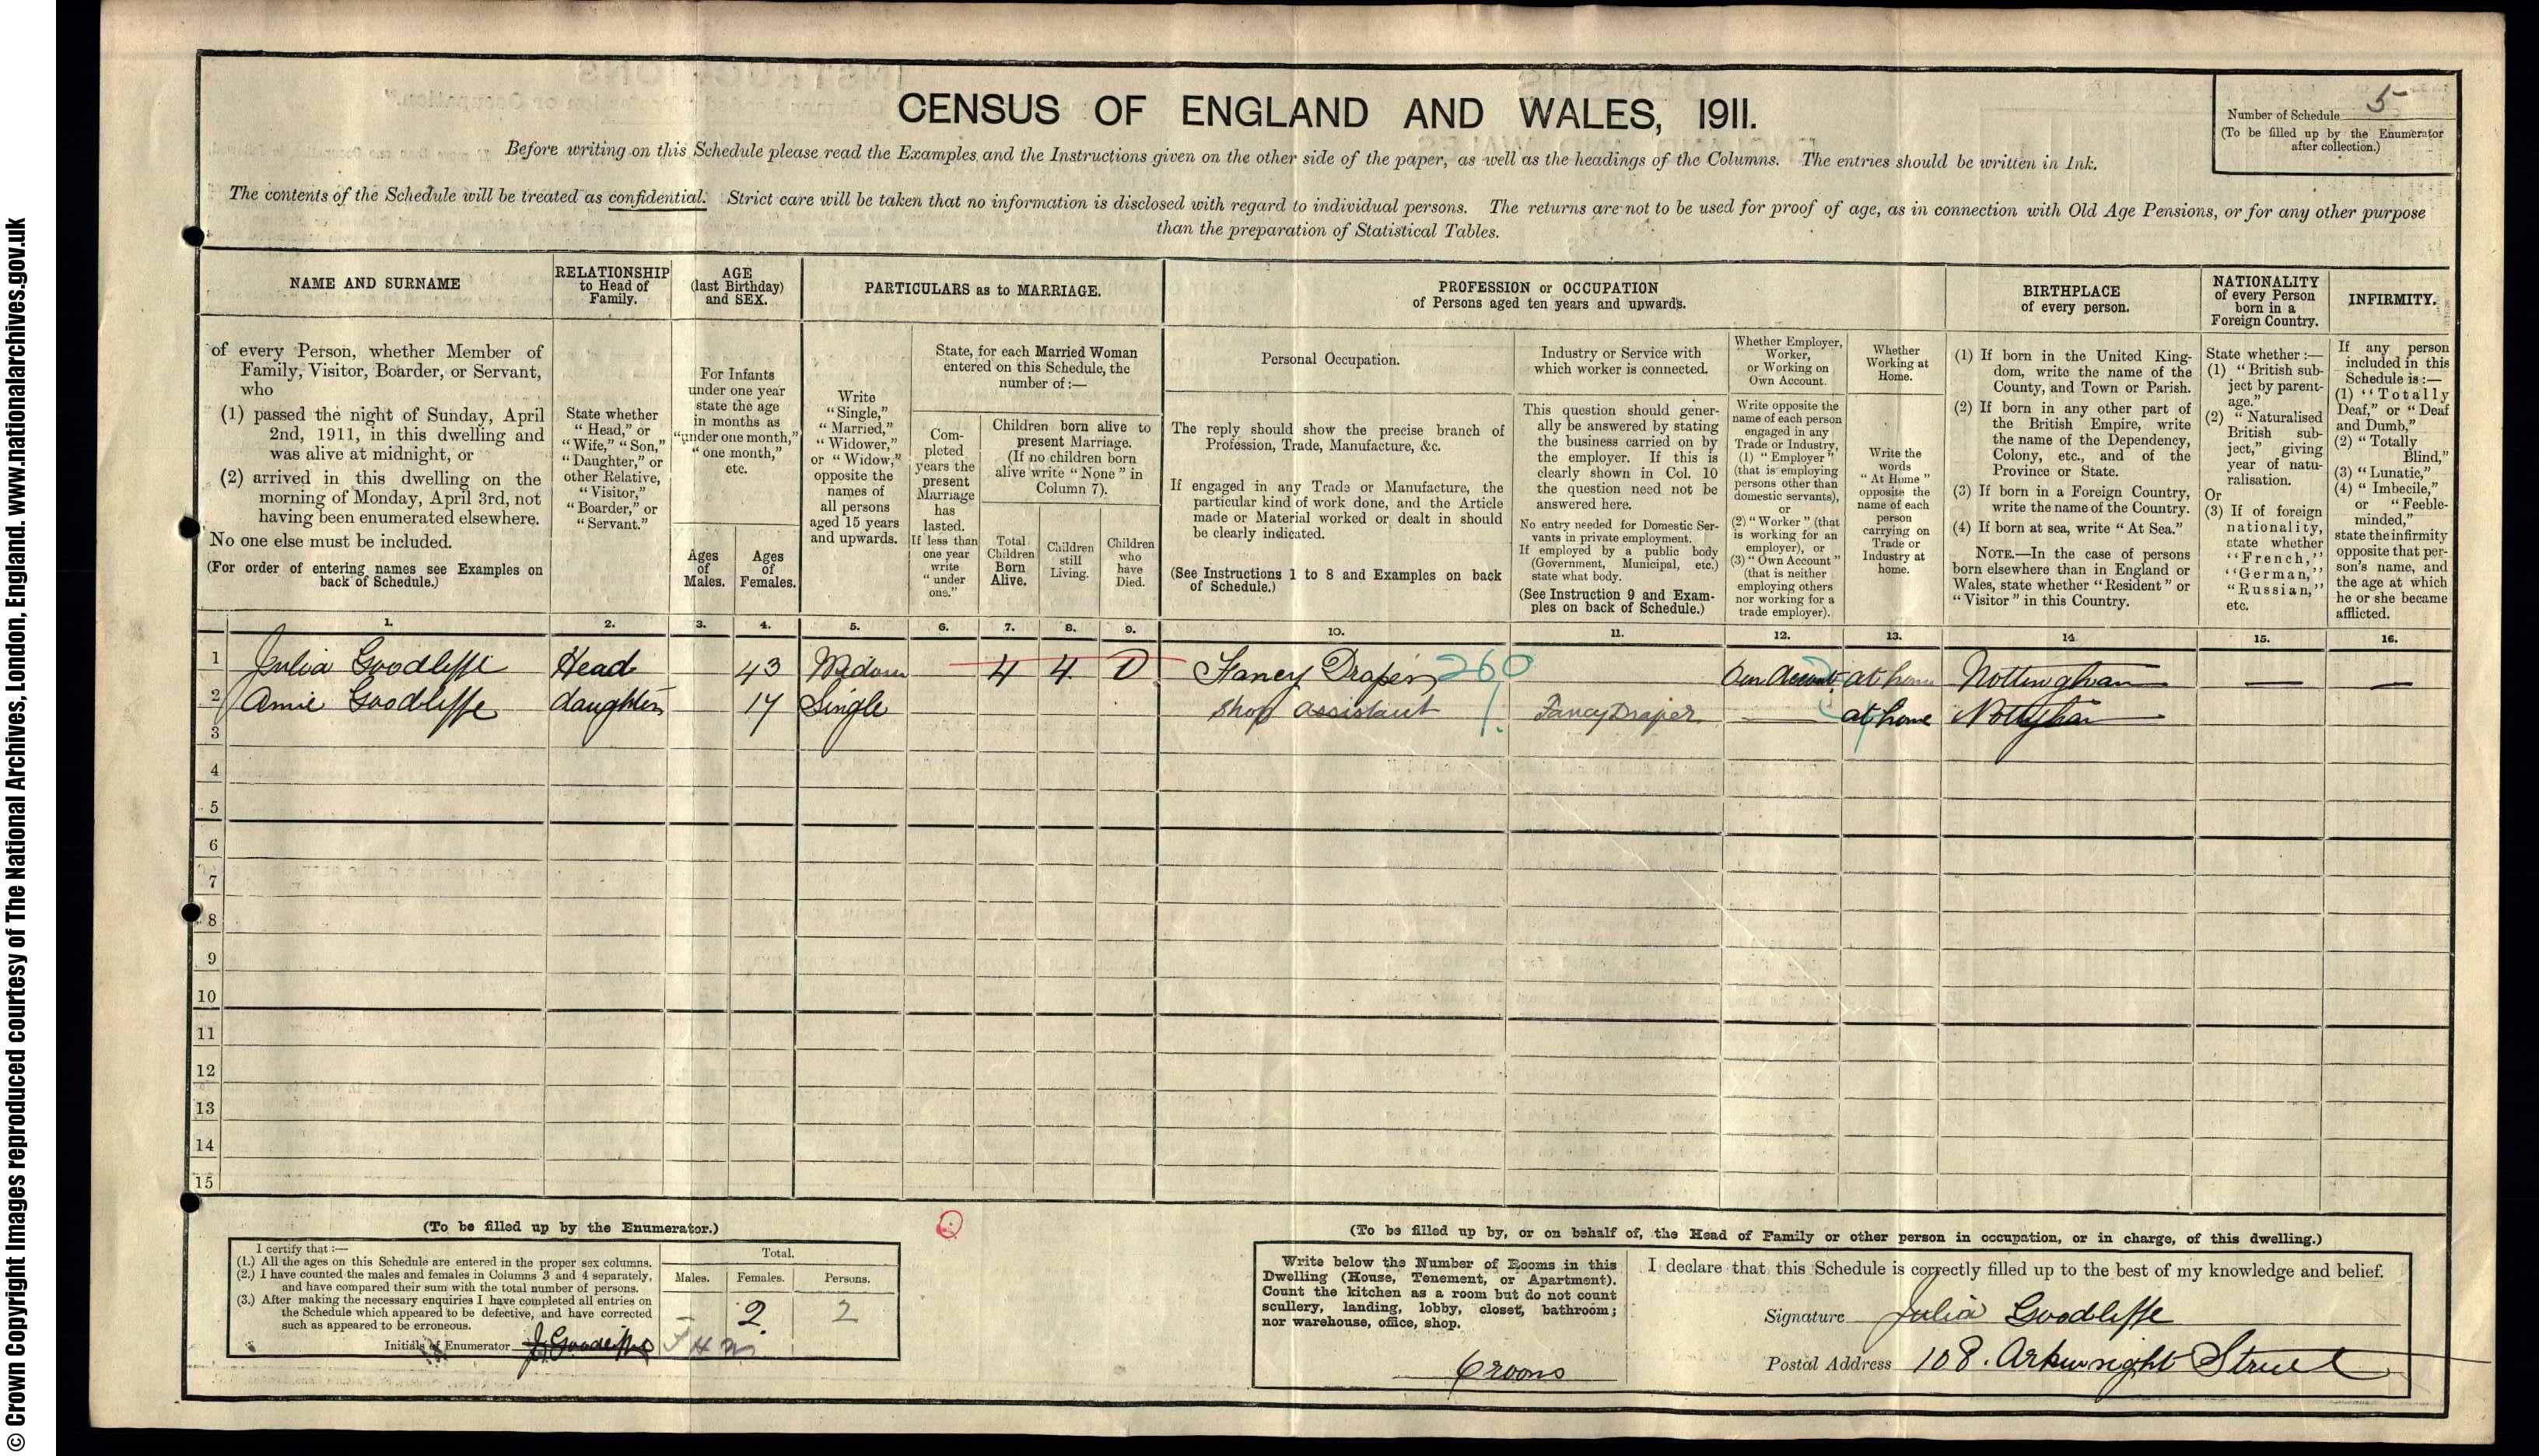 © Crown Copyright Images reproduced courtesy of The National Archives, London, England. www.nationalarchives.gov.uk
CENSUS OF ENGLAND AND WALES, 1911.
Number of Schedule 5
(To be filled up by the Enumerator
after collection.)
Before writing on this Schedule please read the Examples and the Instructions given on the other side of the paper, as well as the headings of the Columns. The entries should be written in Ink.
The contents of the Schedule will be treated as confidential. Strict care will be taken that no information is disclosed with regard to individual persons. The returns are not to be used for proof of age, as in connection with Old Age Pensions, or for any other purpose
than the preparation of Statistical Tables.
NAME AND SURNAME
of every Person, whether Member of
Family, Visitor, Boarder, or Servant,
who
(1) passed the night of Sunday, April
2nd, 1911, in this dwelling and
was alive at midnight, or
(2) arrived in this dwelling on the
morning of Monday, April 3rd, not
having been enumerated elsewhere.
No one else must be included.
(For order of entering names see Examples on
back of Schedule.)
RELATIONSHIP
to Head of
Family.
State whether
"Head," or
"Wife," "Son,"
"Daughter," or
other Relative,
"Visitor,"
"Boarder," or
"Servant."
AGE
(last Birthday)
and SEX.
For Infants
under one year
state the age
in months as
"under one month,"
"one month,"
etc.
Ages
of
Males.
Ages
of
Females.
PARTICULARS as to MARRIAGE.
Write
"Single,"
"Married,"
"Widower,"
or "Widow,"
opposite the
names of
all persons
aged 15 years
and upwards.
State, for each Married Woman
entered on this Schedule, the
number of :—
Com-
pleted
years the
present
Marriage
has
lasted.
If less than
one year
write
"under
one."
Children born alive to
present Marriage.
(If no children born
alive write "None" in
Column 7).
Total
Children
Born
Alive.
Children
still
Living.
Children
who
have
Died.
PROFESSION or OCCUPATION
of Persons aged ten years and upwards.
Personal Occupation.
The reply should show the precise branch of
Profession, Trade, Manufacture, &c.
If engaged in any Trade or Manufacture, the
particular kind of work done, and the Article
made or Material worked or dealt in should
be clearly indicated.
(See Instructions 1 to 8 and Examples on back
of Schedule.)
Industry or Service with
which worker is connected.
This question should gener-
ally be answered by stating
the business carried on by
the employer. If this is
clearly shown in Col. 10
the question need not be
answered here.
No entry needed for Domestic Ser-
vants in private employment.
If employed by a public body
(Government, Municipal, etc.)
state what body.
(See Instruction 9 and Exam-
ples on back of Schedule.)
Whether Employer,
Worker,
or Working on
Own Account.
Write opposite the
name of each person
engaged in any
Trade or Industry,
(1) "Employer"
(that is employing
persons other than
domestic servants),
or
(2) "Worker" (that
is working for an
employer), or
(3) "Own Account"
(that is neither
employing others
nor working for a
trade employer).
Whether
Working at
Home.
Write the
words
"At Home"
opposite the
name of each
person
carrying on
Trade or
Industry at
home.
BIRTHPLACE
of every person.
(1) If born in the United King-
dom, write the name of the
County, and Town or Parish.
(2) If born in any other part of
the British Empire, write
the name of the Dependency,
Colony, etc., and of the
Province or State.
(3) If born in a Foreign Country,
write the name of the Country.
(4) If born at sea, write "At Sea."
NOTE.—In the case of persons
born elsewhere than in England or
Wales, state whether "Resident" or
"Visitor" in this Country.
NATIONALITY
of every Person
born in a
Foreign Country.
State whether :—
(1) "British sub-
ject by parent-
age."
(2) "Naturalised
British sub-
ject," giving
year of natu-
ralisation.
Or
(3) If of foreign
nationality,
state whether
"French,"
"German,"
"Russian,"
etc.
INFIRMITY.
If any person
included in this
Schedule is :—
(1) "Totally
Deaf," or "Deaf
and Dumb,"
(2) "Totally
Blind,"
(3) "Lunatic,"
(4) "Imbecile,"
or "Feeble-
minded,"
state the infirmity
opposite that per-
son's name, and
the age at which
he or she became
afflicted.
1. 2. 3. 4. 5. 6. 7. 8. 9. 10. 11. 12. 13. 14 15. 16.
1 Julia Goodliffe Head 43 Widow 4 4 0 Fancy Draper 260 Own Account at home Nottingham — —
2 Annie Goodliffe daughter 17 Single Shop assistant Fancy Draper — at home Nottingham
3
4
5
6
7
8
9
10
11
12
13
14
15
(To be filled up by the Enumerator.)
I certify that :—
(1.) All the ages on this Schedule are entered in the proper sex columns.
(2.) I have counted the males and females in Columns 3 and 4 separately,
and have compared their sum with the total number of persons.
(3.) After making the necessary enquiries I have completed all entries on
the Schedule which appeared to be defective, and have corrected
such as appeared to be erroneous.
Initials of Enumerator J. Goodliffe
Total.
Males. Females. Persons.
— 2. 2
(To be filled up by, or on behalf of, the Head of Family or other person in occupation, or in charge, of this dwelling.)
Write below the Number of Rooms in this
Dwelling (House, Tenement, or Apartment).
Count the kitchen as a room but do not count
scullery, landing, lobby, closet, bathroom;
nor warehouse, office, shop.
6 rooms
I declare that this Schedule is correctly filled up to the best of my knowledge and belief.
Signature Julia Goodliffe
Postal Address 108. Arkwright Street